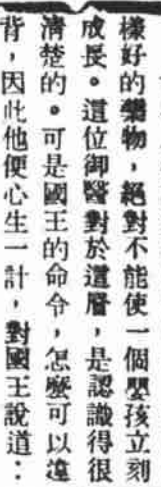 樣好的藥物，絕對不能使一個嬰孩立刻
成長。這位御醫對於這層，是認識得很
清楚的。可是國王的命令，怎麼可以違
背，因此他便心生一計，對國王說道：